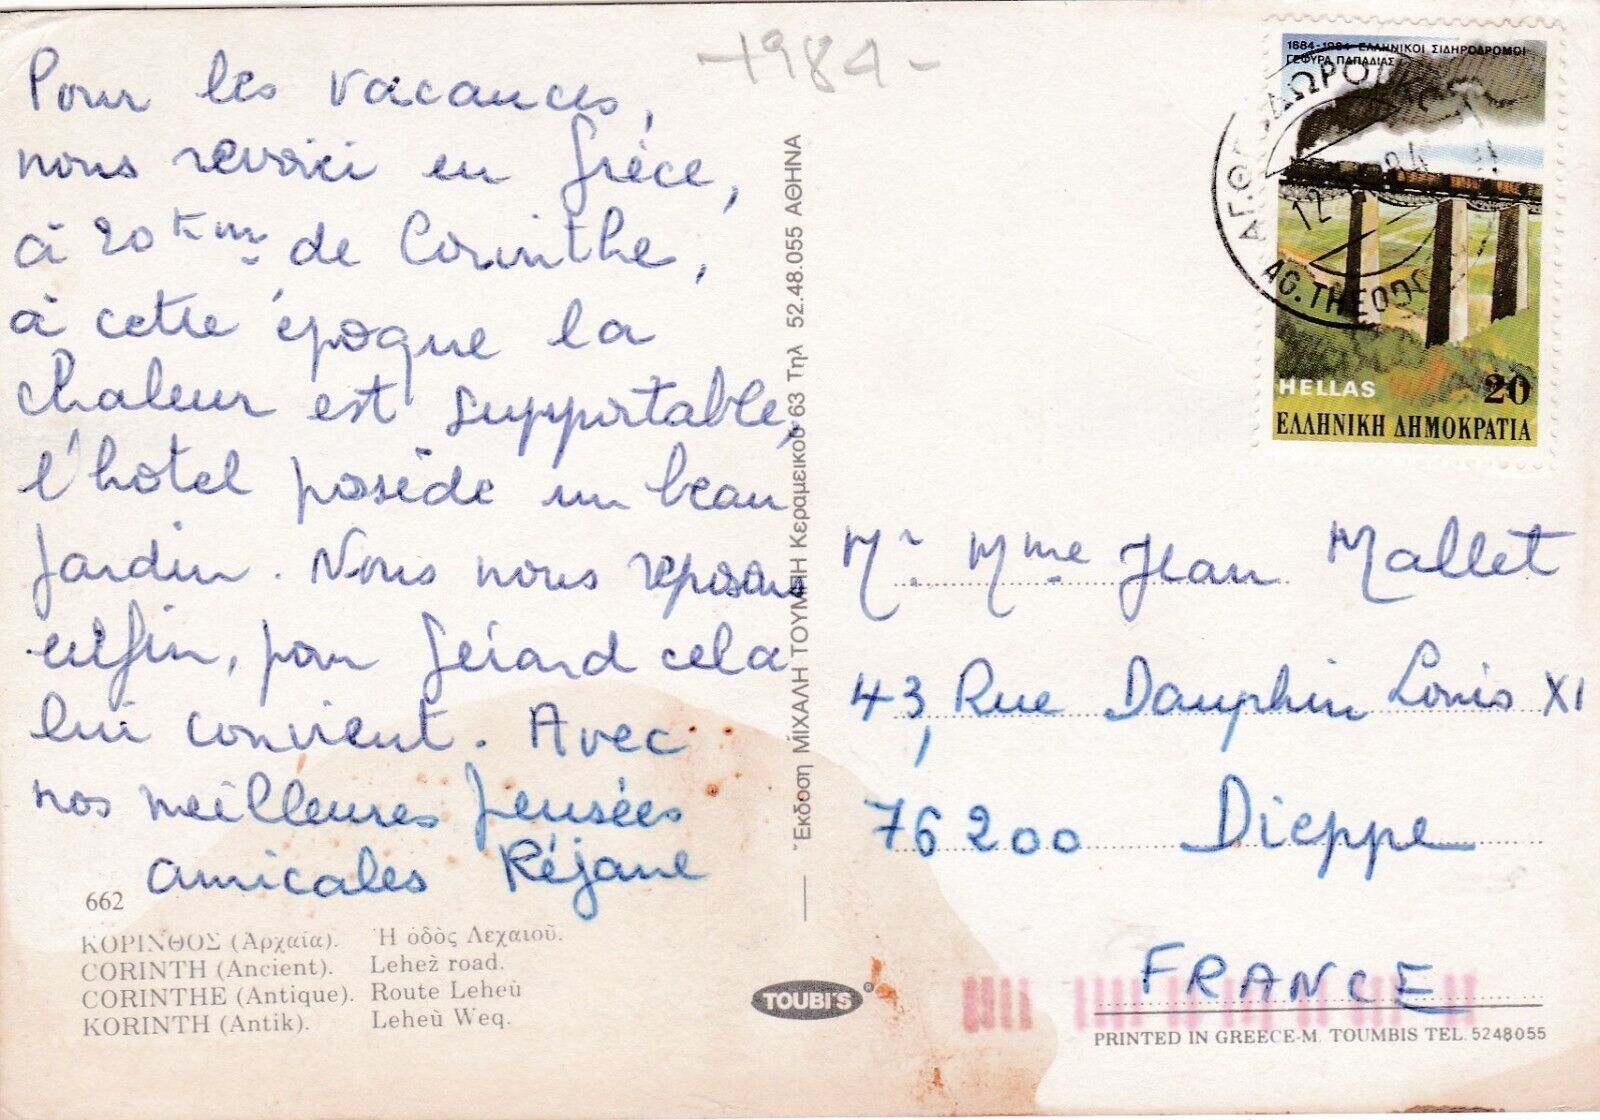 -1984-
Pour les vacances,
nous revoici en Grèce,
à 20 kms de Corinthe,
à cette époque la
chaleur est supportable,
l'hôtel posède un beau
jardin. Nous nous reposons
enfin, pour Gérard cela
lui convient. Avec
nos meilleures pensées
amicales Réjane
662
ΚΟΡΙΝΘΟΣ (Ἀρχαία). Ἡ ὁδὸς Λεχαιοῦ.
CORINTH (Ancient). Lehež road.
CORINTHE (Antique). Route Leheù
KORINTH (Antik). Leheù Weq.
Ἔκδοση ΜΙΧΑΛΗ ΤΟΥΜΠΗ Κεραμεικοῦ 63 Τηλ 52.48.055 ΑΘΗΝΑ
TOUBI'S®
1884-1984 ΕΛΛΗΝΙΚΟΙ ΣΙΔΗΡΟΔΡΟΜΟΙ
ΓΕΦΥΡΑ ΠΑΠΑΔΙΑΣ
HELLAS 20
ΕΛΛΗΝΙΚΗ ΔΗΜΟΚΡΑΤΙΑ
12
84
Mr. Mme Jean Mallet
43, Rue Dauphin Louis XI
76200 Dieppe
FRANCE
PRINTED IN GREECE-M. TOUMBIS TEL. 5248055